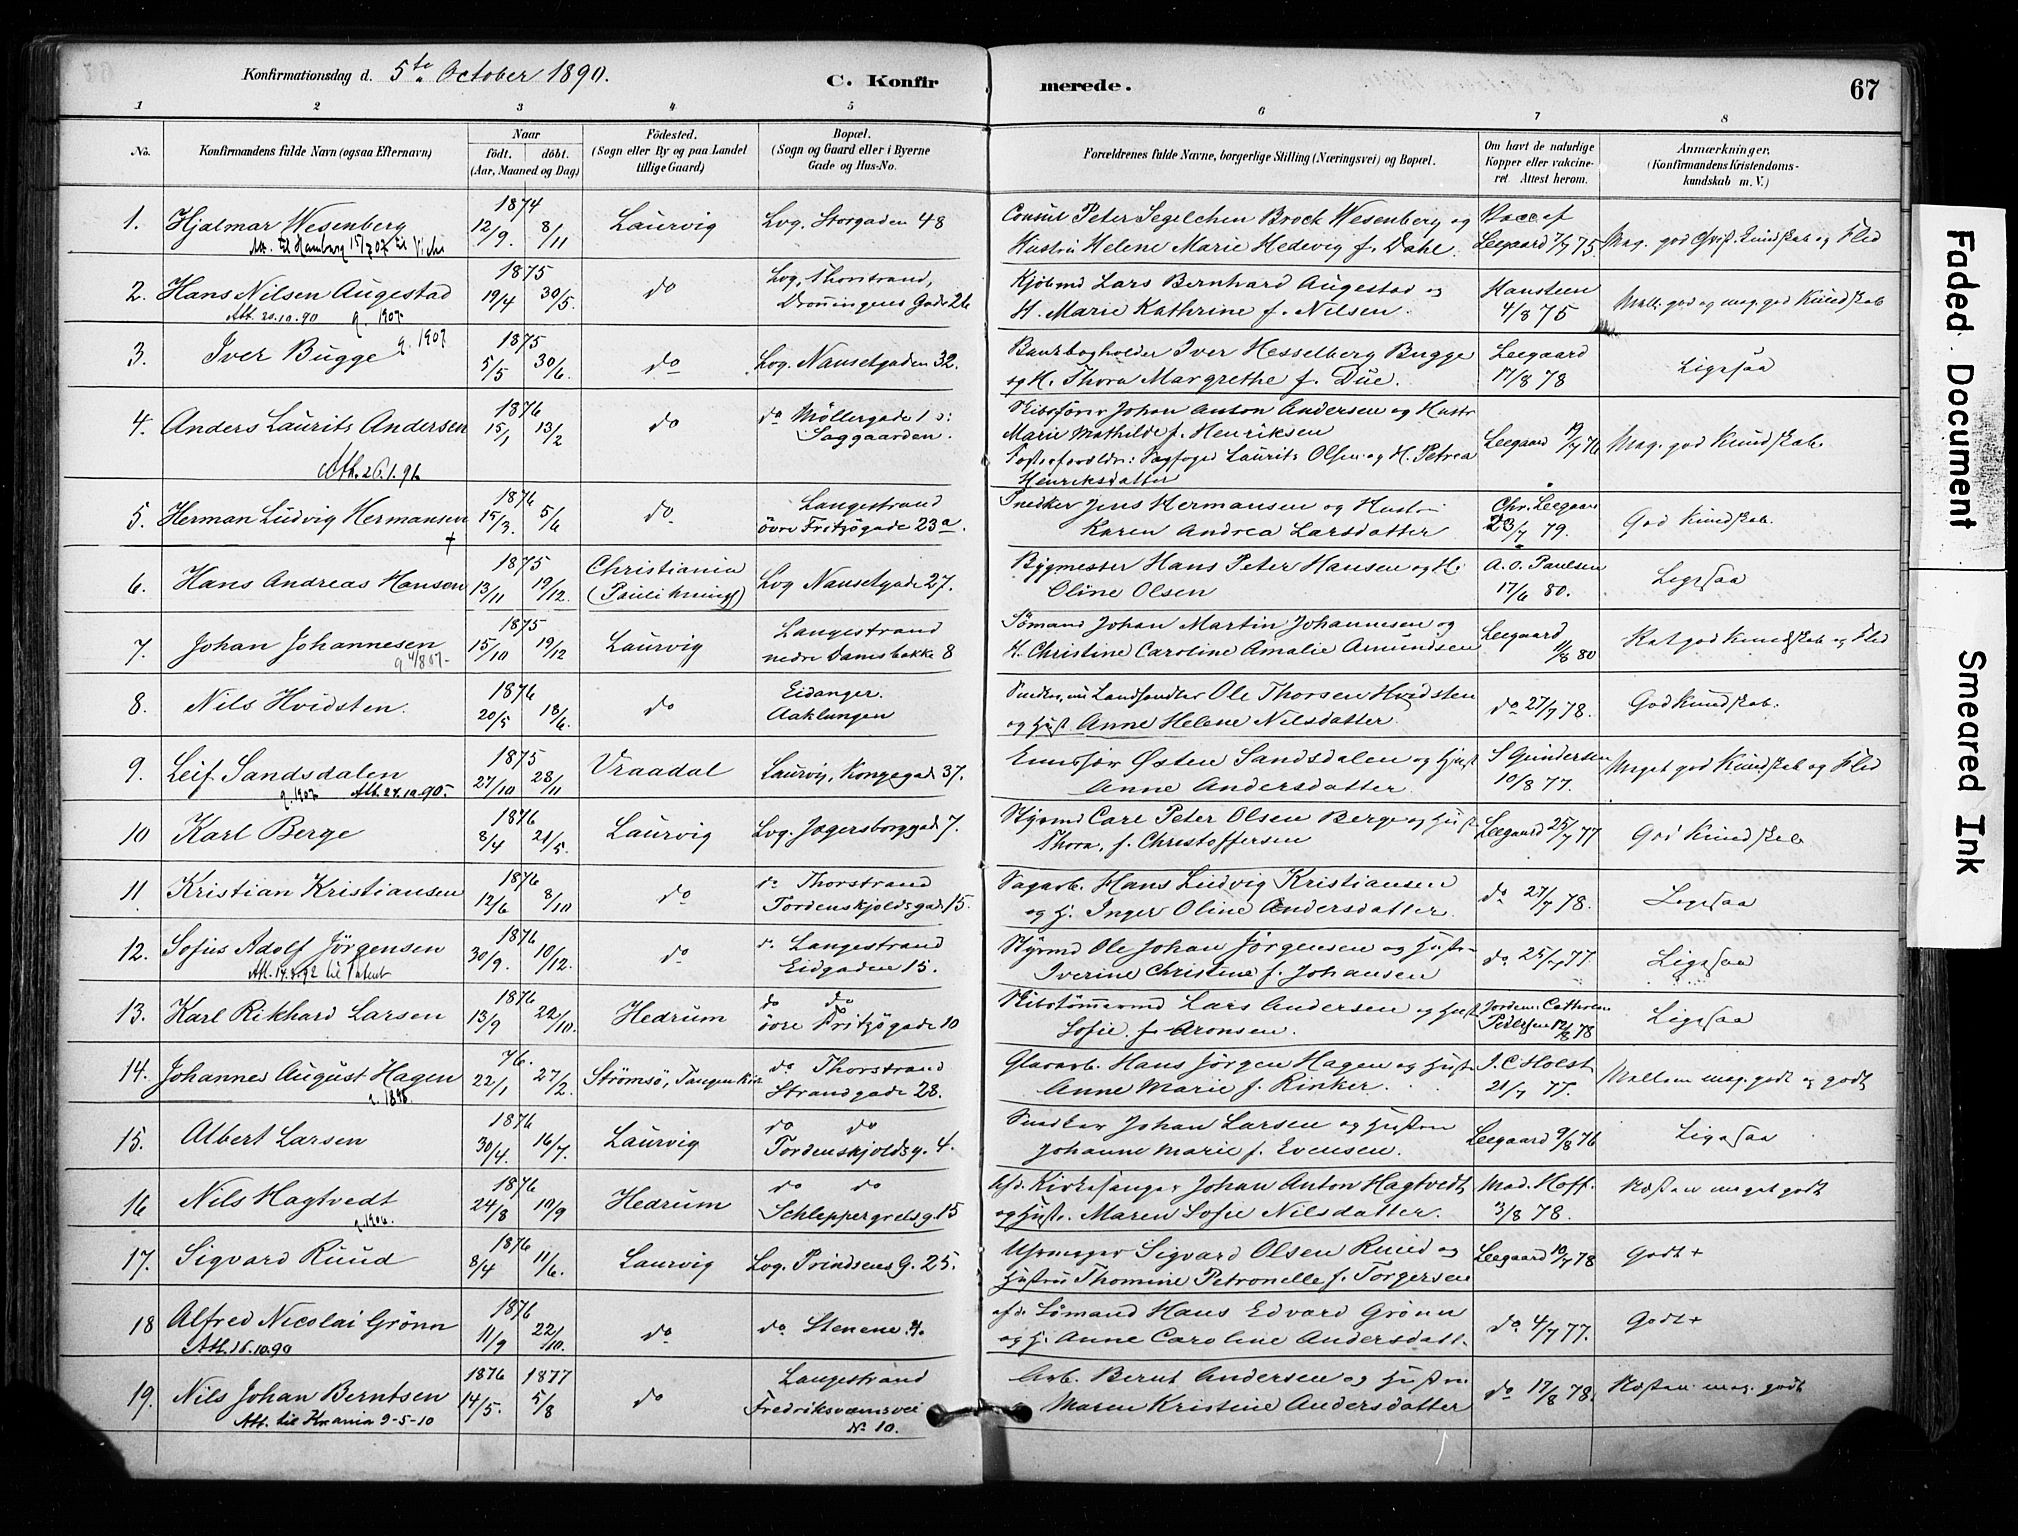 Konfirmationsdag d. 5te October 1890.
C. Konfir merede. 67
1 2 3 4 5 6 7 8
No. Konfirmandens fulde Navn (ogsaa Efternavn) Naar født. døbt. (Aar, Maaned og Dag) Födested. (Sogn eller By og paa Landet tillige Gaard) Bopæl. (Sogn og Gaard eller i Byerne Gade og Hus-No. Forældrenes fulde Navne, borgerlige Stilling (Næringsvei) og Bopæl. Om havt de naturlige Kopper eller vakcineret. Attest herom. Anmærkninger. (Konfirmandens Kristendomskundskab m. V.)
1. Hjalmar Wesenberg 1874 12/9. 8/11 Laurvig Lvg. Storgaden 48 Consul Peter Segelchen Brock Wesenberg og Vacc af
Att. til Hamburg Hustru Helene Marie Hedevig f. Dahl. Leegaard 7/7 75. Mag. god Krist. Kundskab og Flid
2. Hans Nilsen Augestad 1875 19/4 30/5. do Lvg, Thorstrand, Dronningens Gade 26 Kjöbmd Lars Bernhard Augestad og Hansteen
Att. 20.10.90 q. 1907 H. Marie Kathrine f. Nilsen. 4/8 75 Mell. god og mag. god Kundskab
3. Iver Bugge q. 1907 1875 5/5 30/6. do Lvg. Nansetgaden 32. Bankbogholder Iver Hesselberg Bugge Leegaard
og H. Thora Margrethe f. Due. 17/8 78 Ligesaa
4. Anders Laurits Andersen 1876 15/1 13/2 do do Möllergade 1 Saggaarden. Skibsförer Johan Anton Andersen og Hustr
Marie Mathilde f. Henriksen Leegaard 19/7 76 Mag. god Kundskab.
Att. 26.1.96 Plejeforældre: Sagfoged Laurits Olsen og H. Petrea
Henriksdatter
5. Herman Ludvig Hermansen + 1876 15/3. 5/6 do Langestrand övre Fritzögade 23a. Snedker Jens Hermansen og Hustru Chr. Leegaard
Karen Andrea Larsdatter 23/7 79. God Kundskab.
6. Hans Andreas Hansen 1875 13/11 19/12. Christiania (Pauli Menigh) Lvg Nansetgade 27. Bygmester Hans Peter Hansen og H. A. O. Paulsen
Oline Olsen 17/6 80. Ligesaa
7. Johan Johannesen q 4/8 07- 1875 15/10 19/12 Laurvig Langestrand nedre Damsbakke 8 Sömand Johan Martin Johannesen og Leegaard
H. Christine Caroline Amalie Amundsen 11/8 80 Mat god Kundskab og Flid
8. Nils Hvidsten. 1876 20/5 18/6. do Eidanger. Aaklungen Snedker, nu Landhandler Ole Thorsen Hvidsten
og Hust. Anne Helene Nilsdatter. do 27/7 78. God Kundskab.
9. Leif Sandsdalen 1875 27/10 28/11 Vraadal Laurvig, Kongegad 37. Østen Sandsdalen og Hust S Gundersen
q. 1907 Att. 24.10.90- Anne Andersdatter. 10/8 77. Meget god Kundskab og Flid
10 Karl Berge 1876 8/4 21/5. Laurvig Lvg. Jegersborggad 7. Styrmd Carl Peter Olsen Berge og Hust
Thora, f. Christoffersen Leegaard 25/7 77 God Kundskab
11 Kristian Kristiansen 1876 12/6 8/10 do do Thorstrand Tordenskjoldsgade 15. Sagarb. Hans Ludvig Kristiansen
og H. Inger Oline Andersdatter. do 27/7 78. Ligesaa
12. Sofus Adolf Jörgensen 1876 30/9. 10/12. do do Langestrand Eidgaden 15. Styrmd Ole Johan Jörgensen og Hustru
Att. 14.3.92 til Patent Iverine Christine f. Johansen do 25/7 77. Ligesaa
13. Karl Rikhard Larsen 1876 13/9 22/10. Hedrum do do övre Fritzögade 10 Skibstömmermd Lars Andersen og Hust Jordem. Cathrine
Sofie f. Aronsen. Pedersen 12/8 78 Ligesaa
14. Johannes August Hagen 76. 22/1 27/2. Strömsö, Tangen Kirk do Thorstrand Strandgade 28. Glasarb. Hans Jörgen Hagen og Hust J. C. Holst
q. 1898. Anne Marie f. Rinker. 21/7 77. Mellem mag. godt og godt
15. Albert Larsen 1876 30/4. 16/7. Laurvig do do Tordenskjoldsg. 4. Snedker Johan Larsen og Hustru
Johanne Marie f. Evensen. Leegaard 9/8 76 Ligesaa
16 Nils Hagtvedt q. 1906. 1876 24/8 10/9 Hedrum do do Schleppergrelsg. 15 afd. Kirkesanger Johan Anton Hagtvedt Mad. Hoff.
og Hust. Maren Sofie Nilsdatter. 3/8 78. Næsten meget godt
17. Sigvard Ruud 1876 8/4 11/6. Laurvig Lvg. Prindsens G. 25. Urmager Sigvard Olsen Ruud og Leegaard 10/7 78 Godt +
Hustru Thomine Petronelle f. Torgersen
18 Alfred Nicolai Grönn 1876 11/9 22/10. do do Stenene 4. afd. Sömand Hans Edvard Grönn
Att. 16.10.90 og H. Anne Caroline Andersdatt. do 4/7 77. Godt +
19. Nils Johan Berntsen 1876 14/5. 1877 5/8 do Langestrand Fredriksværnsvei No 10. Arb. Bernt Andersen og Hustru
Att. til Krania 9-5-10 Maren Kristine Andersdatter do 17/8 78. Næsten mag. godt
Faded Document
Smeared Ink